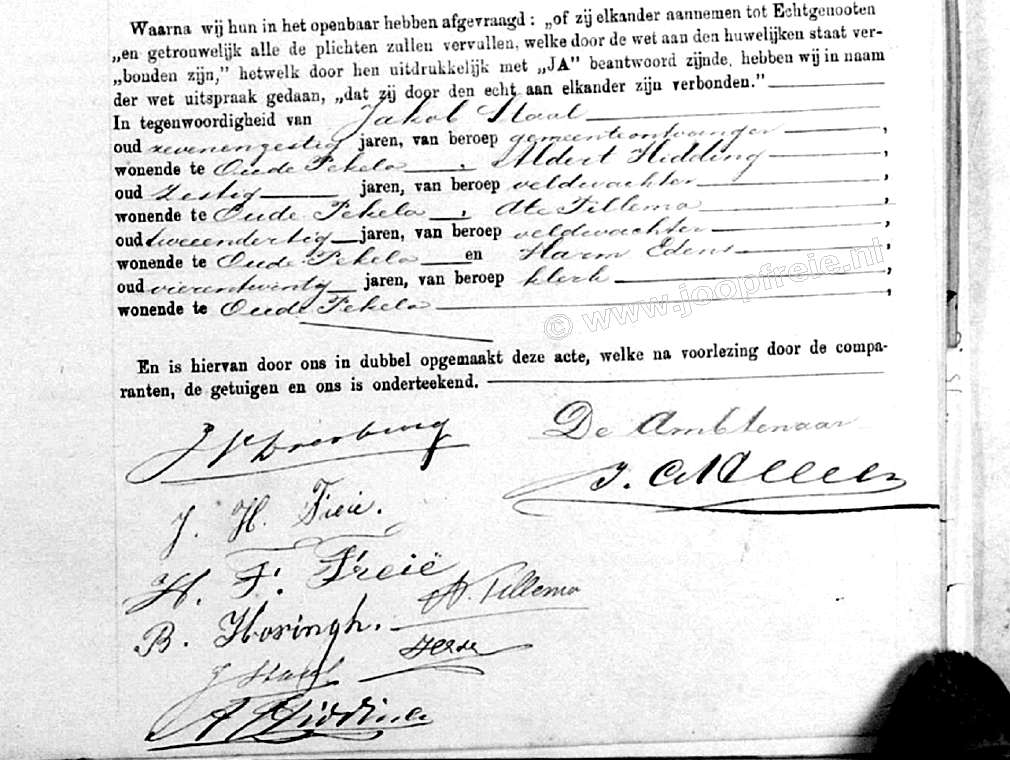 Waarna wij hun in het openbaar hebben afgevraagd: „of zij elkander aannemen tot Echtgenooten
„en getrouwelijk alle de plichten zullen vervullen, welke door de wet aan den huwelijken staat ver-
„bonden zijn,” hetwelk door hen uitdrukkelijk met „JA” beantwoord zijnde, hebben wij in naam
der wet uitspraak gedaan, „dat zij door den echt aan elkander zijn verbonden.”
In tegenwoordigheid van Jakob Staal
oud zevenengestig jaren, van beroep gemeenteontvanger,
wonende te Oude Pekela, Aldert Hidding
oud zestig jaren, van beroep veldwachter,
wonende te Oude Pekela, Ate Tillema,
oud tweeendertig jaren, van beroep veldwachter,
wonende te Oude Pekela en Harm Edens,
oud vierentwintig jaren, van beroep klerk,
wonende te Oude Pekela,
© www.joopfreie.nl
En is hiervan door ons in dubbel opgemaakt deze acte, welke na voorlezing door de compa-
ranten, de getuigen en ons is onderteekend.
De Ambtenaar
J. H. Freie.
H. F. Freië
A. Tillema
B. Hosingh.
J Staal
A Hidding